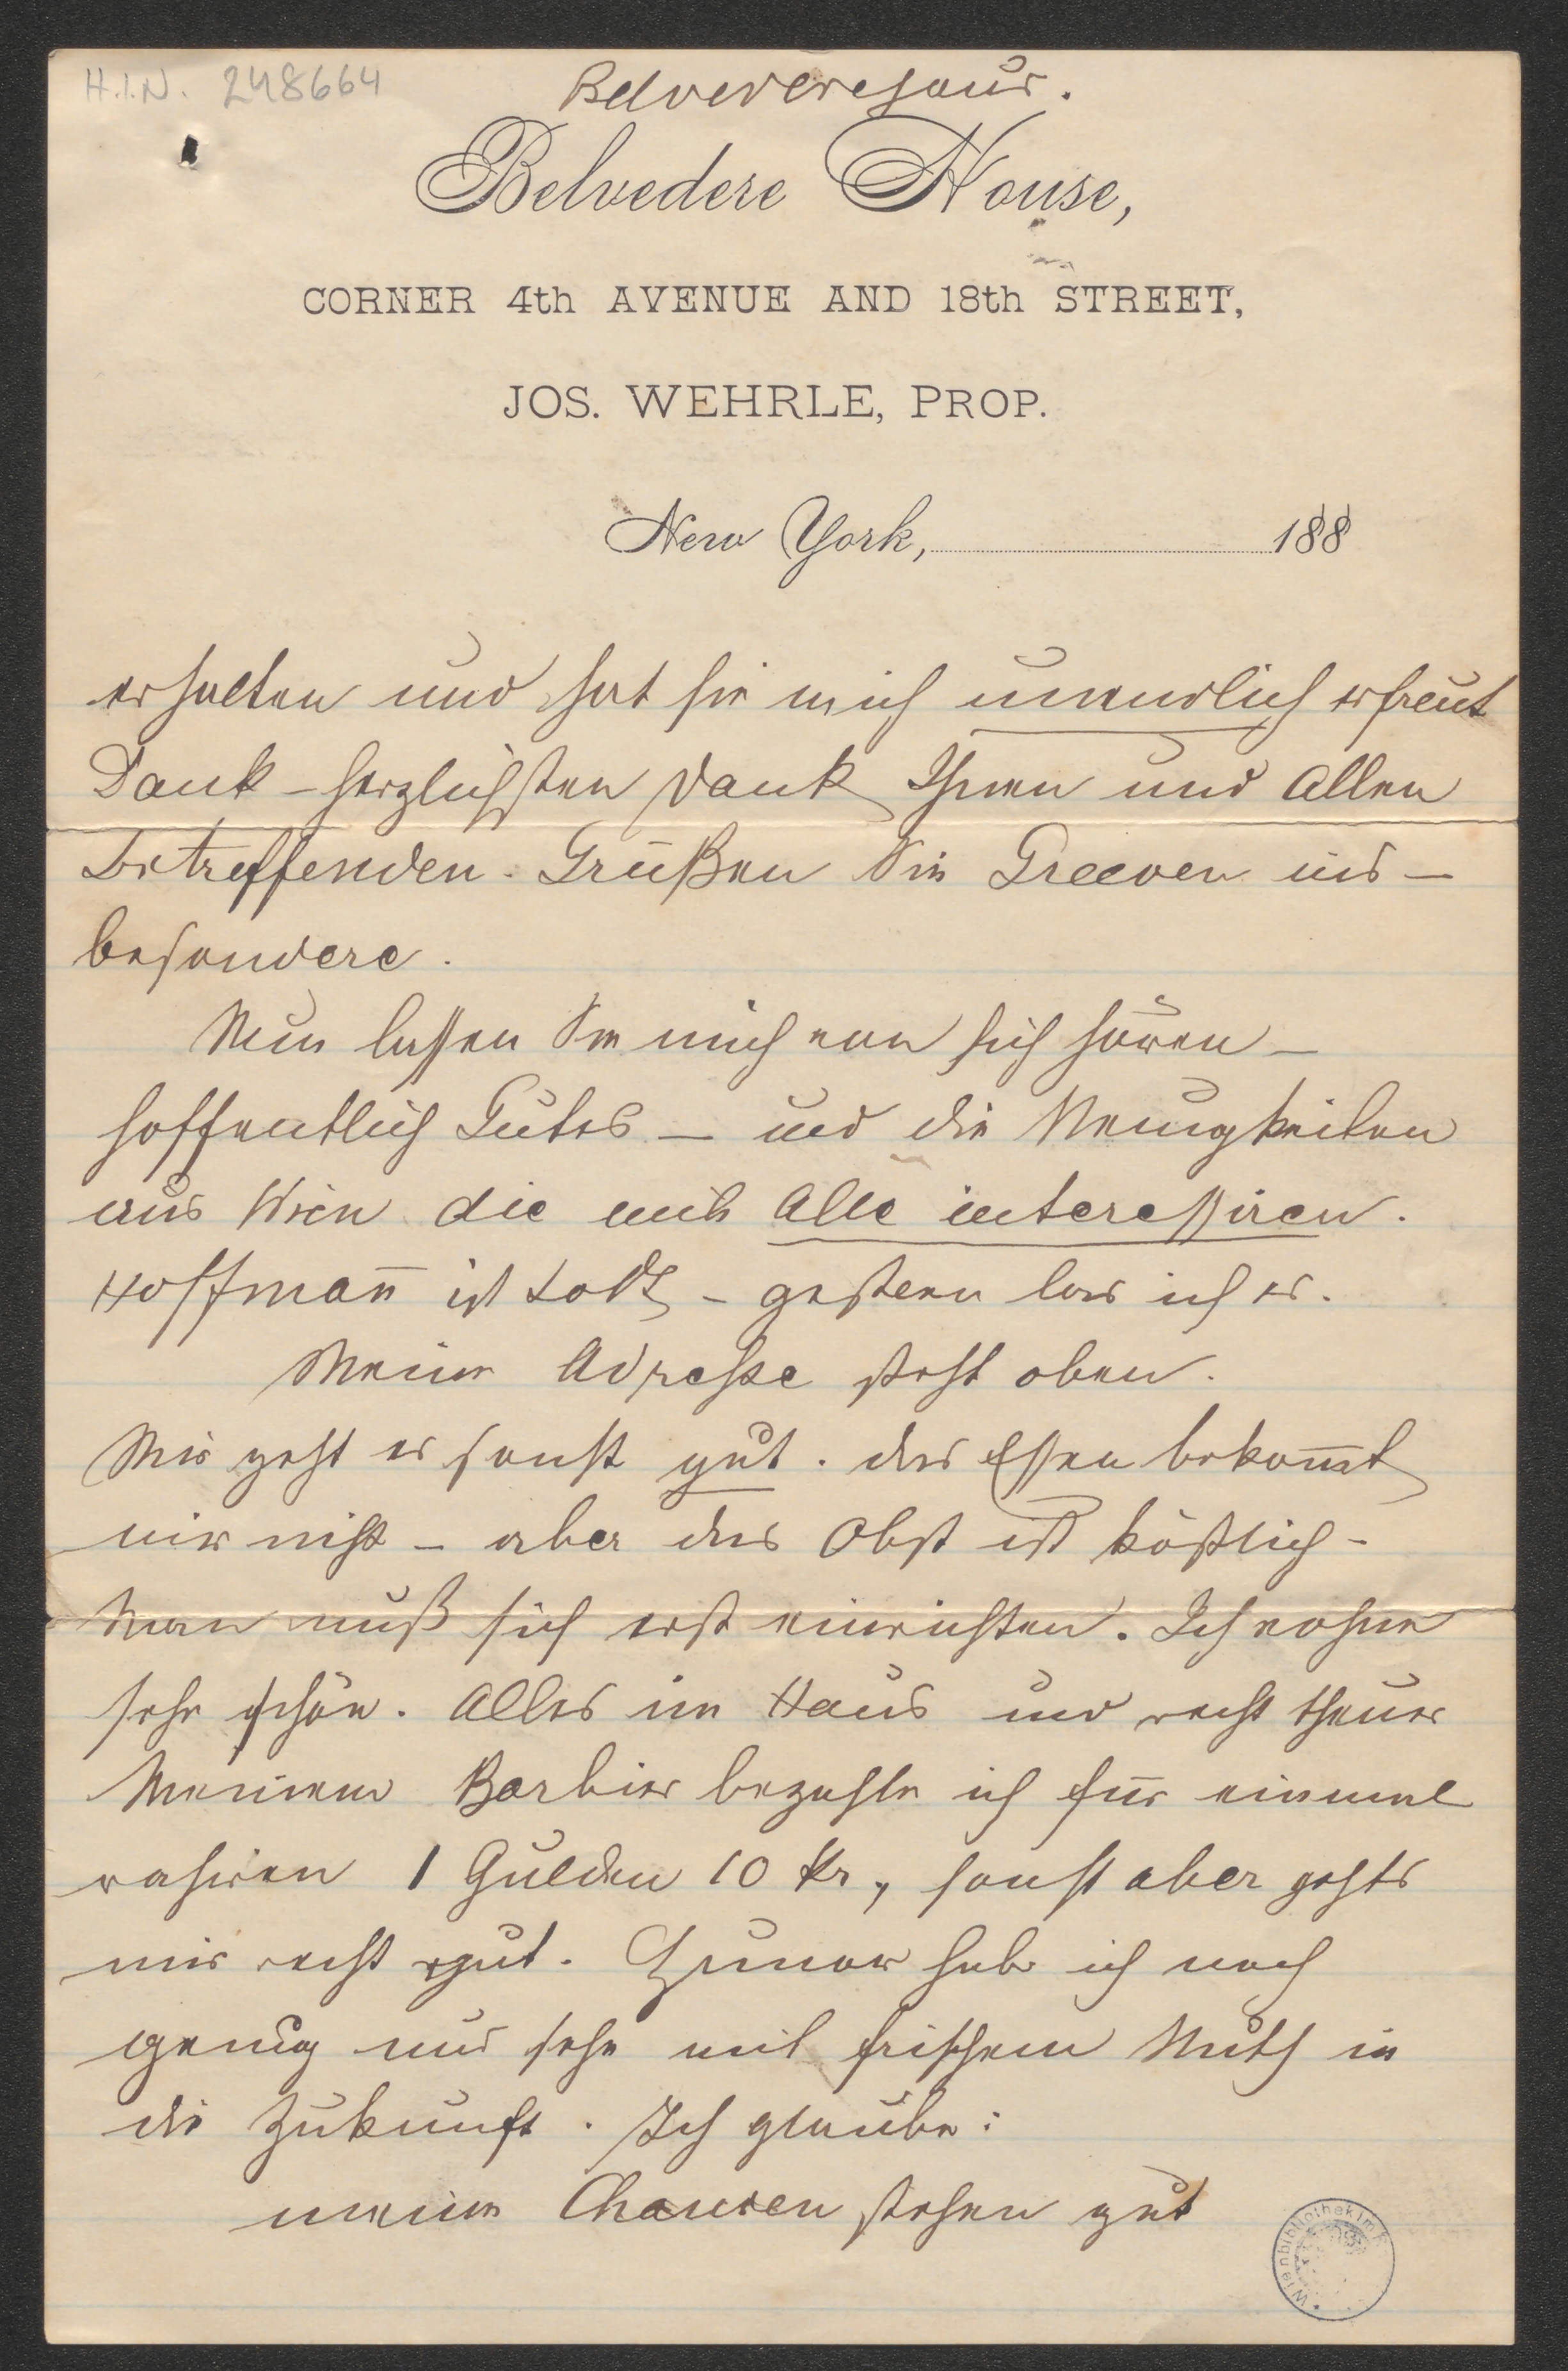 H.I.N. 248664
Belvederehaus.
Belvedere House,
CORNER 4th AVENUE AND 18th STREET,
JOS. WEHRLE, PROP.
New York, 188
erhalten und hat sie mich unendlich erfreut
Dank - herzlichsten Dank Ihnen und Allen
Betreffenden. Grüßen Sie Greeven ins-
besondere.
Nun lassen Sie mich von sich hören -
hoffentlich Gutes - und die Neuigkeiten
aus Wien die mich Alle interessiren.
Hoffmann̄ ist todt - gestern las ich es.
Meine Adresse steht oben.
Mir geht es sonst gut. das Essen bekom̄t
mir nicht - aber das Obst ist köstlich -
Man muß sich erst einrichten. Ich wohne
sehr schön. Alles im Haus und recht theuer
Meinem Barbier bezahle ich für einmal
rasiren 1 Gulden 10 Kr, sonst aber gehts
mir recht gut. Humor hab ich noch
genug und sehe mit frischem Muth in
die Zukunft. Ich glaube:
meine Chancen stehen gut
Wienbibliothek im